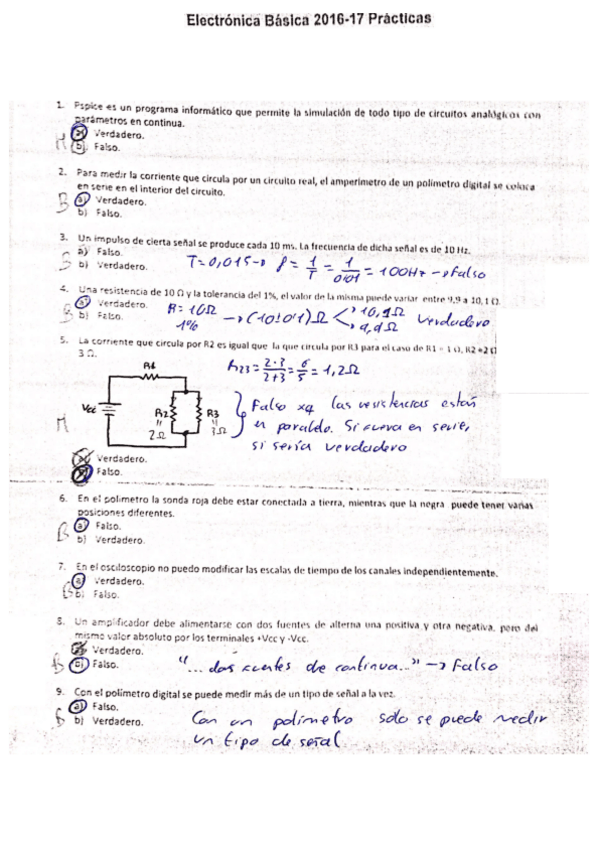 Electrónica Básica 2016-17 Prácticas
1. Pspice es un programa informático que permite la simulación de todo tipo de circuitos analógicos con
parámetros en continua.
a) Verdadero.
M b) Falso.
2. Para medir la corriente que circula por un circuito real, el amperímetro de un polímetro digital se coloca
en serie en el interior del circuito.
B a) Verdadero.
b) Falso.
3. Un impulso de cierta señal se produce cada 10 ms. La frecuencia de dicha señal es de 10 Hz.
a) Falso.
B b) Verdadero.
T=0,01s→ f = 1/T = 1/0'01 = 100Hz → Falso
4. Una resistencia de 10 Ω y la tolerancia del 1%, el valor de la misma puede variar entre 9,9 a 10,1 Ω.
a) Verdadero.
B b) Falso.
R = 10Ω
1%
→ (10±0'1) Ω < 10,1Ω
9,9Ω
Verdadero
5. La corriente que circula por R2 es igual que la que circula por R3 para el caso de R1 = 1 Ω, R2 =2 Ω
3 Ω.
R23 = 2·3/2+3 = 6/5 = 1,2Ω
R1
Vcc
R2
=
2Ω
R3
=
3Ω
Falso xq las resistencias están
en paralelo. Si fuera en serie,
si sería verdadero
M
Verdadero.
Falso.
6. En el polímetro la sonda roja debe estar conectada a tierra, mientras que la negra puede tener varias
posiciones diferentes.
B a) Falso.
b) Verdadero.
7. En el osciloscopio no puedo modificar las escalas de tiempo de los canales independientemente.
a) Verdadero.
B b) Falso.
8. Un amplificador debe alimentarse con dos fuentes de alterna una positiva y otra negativa, pero del
mismo valor absoluto por los terminales +Vcc y -Vcc.
a) Verdadero.
B b) Falso.
"... dos fuentes de continua..." → Falso
9. Con el polímetro digital se puede medir más de un tipo de señal a la vez.
a) Falso.
B b) Verdadero.
Con un polímetro solo se puede medir
un tipo de señal.